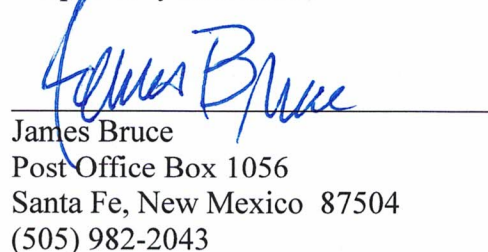 James Bruce
James Bruce
Post Office Box 1056
Santa Fe, New Mexico 87504
(505) 982-2043